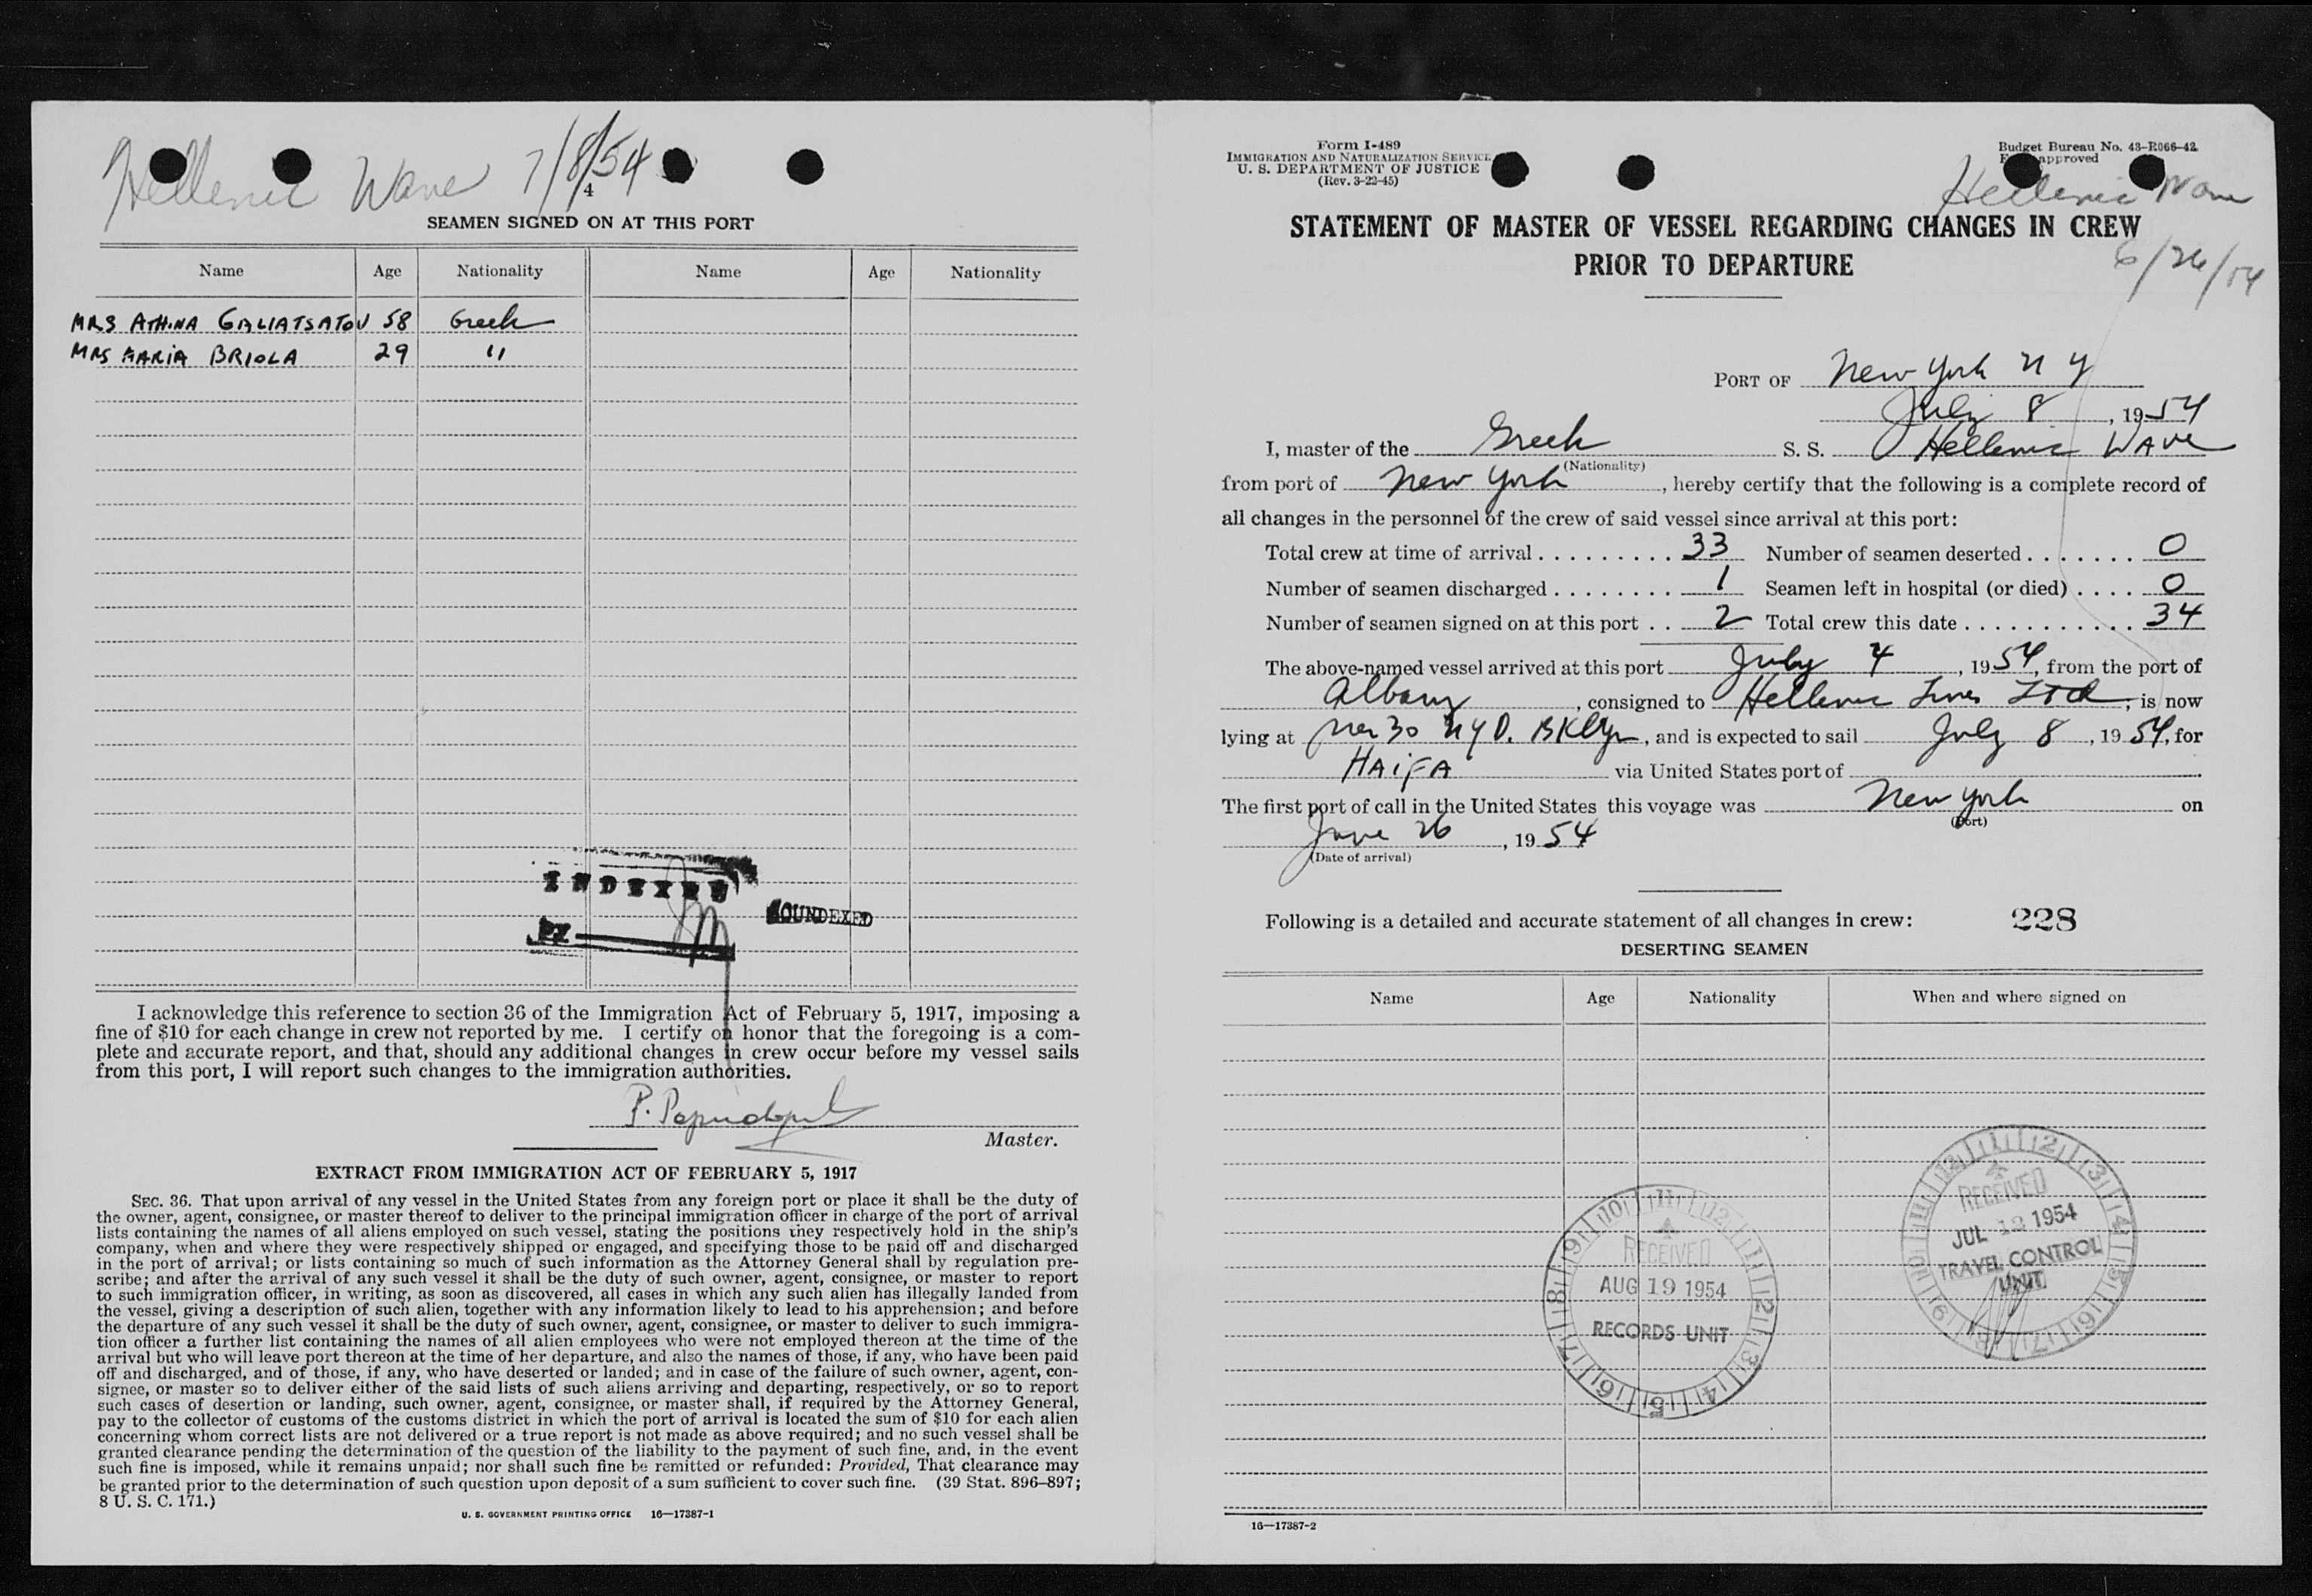 Hellenic Wave 7/8/54
4
SEAMEN SIGNED ON AT THIS PORT
Name Age Nationality Name Age Nationality
MRS ATHINA GALIATSATOU 58 Greek
MRS MARIA BRIOLA 29 "
INDEXED
BY
SOUNDEXED
I acknowledge this reference to section 36 of the Immigration Act of February 5, 1917, imposing a
fine of $10 for each change in crew not reported by me. I certify on honor that the foregoing is a com-
plete and accurate report, and that, should any additional changes in crew occur before my vessel sails
from this port, I will report such changes to the immigration authorities.
P.
Master.
EXTRACT FROM IMMIGRATION ACT OF FEBRUARY 5, 1917
SEC. 36. That upon arrival of any vessel in the United States from any foreign port or place it shall be the duty of
the owner, agent, consignee, or master thereof to deliver to the principal immigration officer in charge of the port of arrival
lists containing the names of all aliens employed on such vessel, stating the positions they respectively hold in the ship's
company, when and where they were respectively shipped or engaged, and specifying those to be paid off and discharged
in the port of arrival; or lists containing so much of such information as the Attorney General shall by regulation pre-
scribe; and after the arrival of any such vessel it shall be the duty of such owner, agent, consignee, or master to report
to such immigration officer, in writing, as soon as discovered, all cases in which any such alien has illegally landed from
the vessel, giving a description of such alien, together with any information likely to lead to his apprehension; and before
the departure of any such vessel it shall be the duty of such owner, agent, consignee, or master to deliver to such immigra-
tion officer a further list containing the names of all alien employees who were not employed thereon at the time of the
arrival but who will leave port thereon at the time of her departure, and also the names of those, if any, who have been paid
off and discharged, and of those, if any, who have deserted or landed; and in case of the failure of such owner, agent, con-
signee, or master so to deliver either of the said lists of such aliens arriving and departing, respectively, or so to report
such cases of desertion or landing, such owner, agent, consignee, or master shall, if required by the Attorney General,
pay to the collector of customs of the customs district in which the port of arrival is located the sum of $10 for each alien
concerning whom correct lists are not delivered or a true report is not made as above required; and no such vessel shall be
granted clearance pending the determination of the question of the liability to the payment of such fine, and, in the event
such fine is imposed, while it remains unpaid; nor shall such fine be remitted or refunded: Provided, That clearance may
be granted prior to the determination of such question upon deposit of a sum sufficient to cover such fine. (39 Stat. 896–897;
8 U. S. C. 171.)
U. S. GOVERNMENT PRINTING OFFICE 16—17387-1
Form I-489
IMMIGRATION AND NATURALIZATION SERVICE
U. S. DEPARTMENT OF JUSTICE
(Rev. 3-22-45)
Budget Bureau No. 43-R066-42
approved
Hellenic Wave
6/26/54
STATEMENT OF MASTER OF VESSEL REGARDING CHANGES IN CREW
PRIOR TO DEPARTURE
PORT OF New York N Y
July 8, 1954
I, master of the Greek S. S. Hellenic Wave
(Nationality)
from port of New York, hereby certify that the following is a complete record of
all changes in the personnel of the crew of said vessel since arrival at this port:
Total crew at time of arrival 33 Number of seamen deserted 0
Number of seamen discharged 1 Seamen left in hospital (or died) 0
Number of seamen signed on at this port 2 Total crew this date 34
The above-named vessel arrived at this port July 4, 1954, from the port of
Albany, consigned to Hellenic Lines Ltd, is now
lying at Pier 30 NYD. BKlyn, and is expected to sail July 8, 1954, for
HAIFA via United States port of
The first port of call in the United States this voyage was New York on
(Port)
June 26, 1954
(Date of arrival)
Following is a detailed and accurate statement of all changes in crew: 228
DESERTING SEAMEN
Name Age Nationality When and where signed on
RECEIVED
JUL 12 1954
TRAVEL CONTROL
UNIT
RECEIVED
AUG 19 1954
RECORDS UNIT
16—17387-2